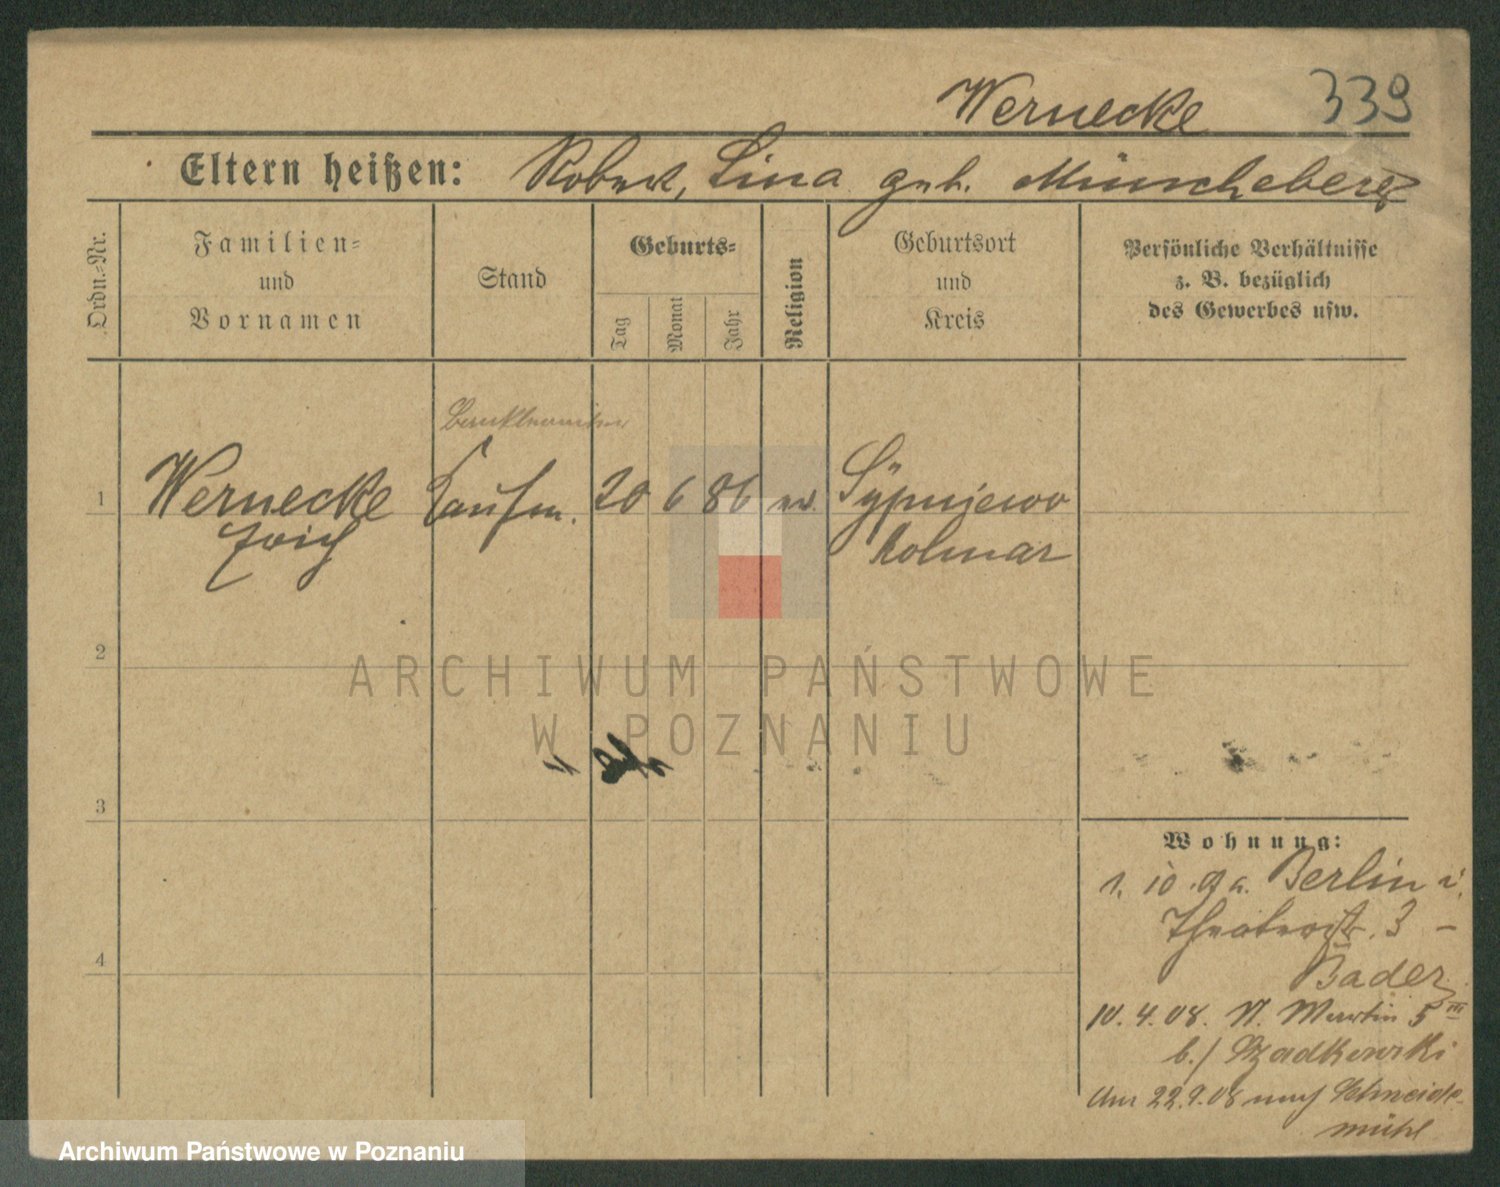 Wernecke 339
Eltern heißen: Robert, Lina geb. Müncheberg
Ordn.=Nr.
Familien=
und
Vornamen
Stand
Geburts=
Tag
Monat
Jahr
Religion
Geburtsort
und
Kreis
Persönliche Verhältnisse
z. B. bezüglich
des Gewerbes usw.
Bankbeamter
1 Wernecke Kaufm. 20 6 86 ev. Sypniewo
Erich Kolmar
2
ARCHIWUM PAŃSTWOWE
W POZNANIU
3
Wohnung:
4
1. 10. Berlin
Theaterstr. 3 -
Bader
10. 4. 08. St. Martin 5 III
b./ Szadkowski
Am 22.9.08 nach Schneide-
mühl
Archiwum Państwowe w Poznaniu